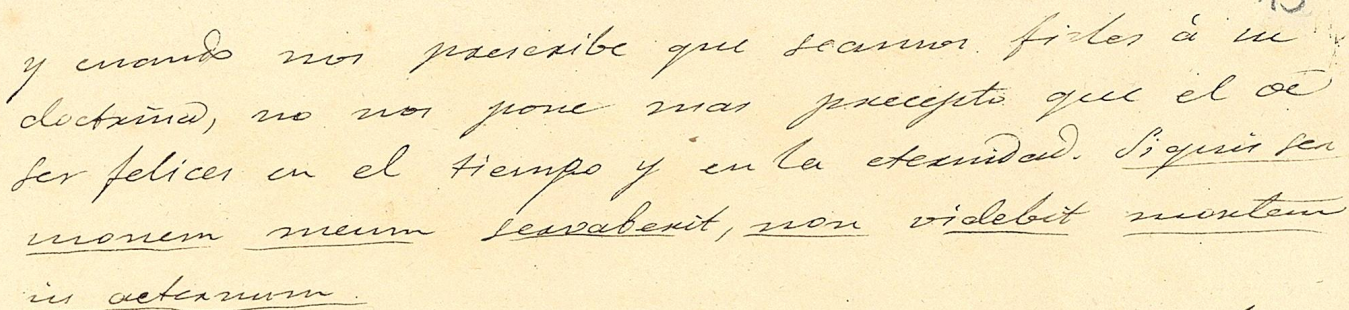 y cuando nos prescribe que seamos fieles á su
doctrina, no nos pone mas precepto que el de
ser felices en el tiempo y en la eternidad. Si quis ser
monem meum servaberit, non videbit mortem
in aeternum.